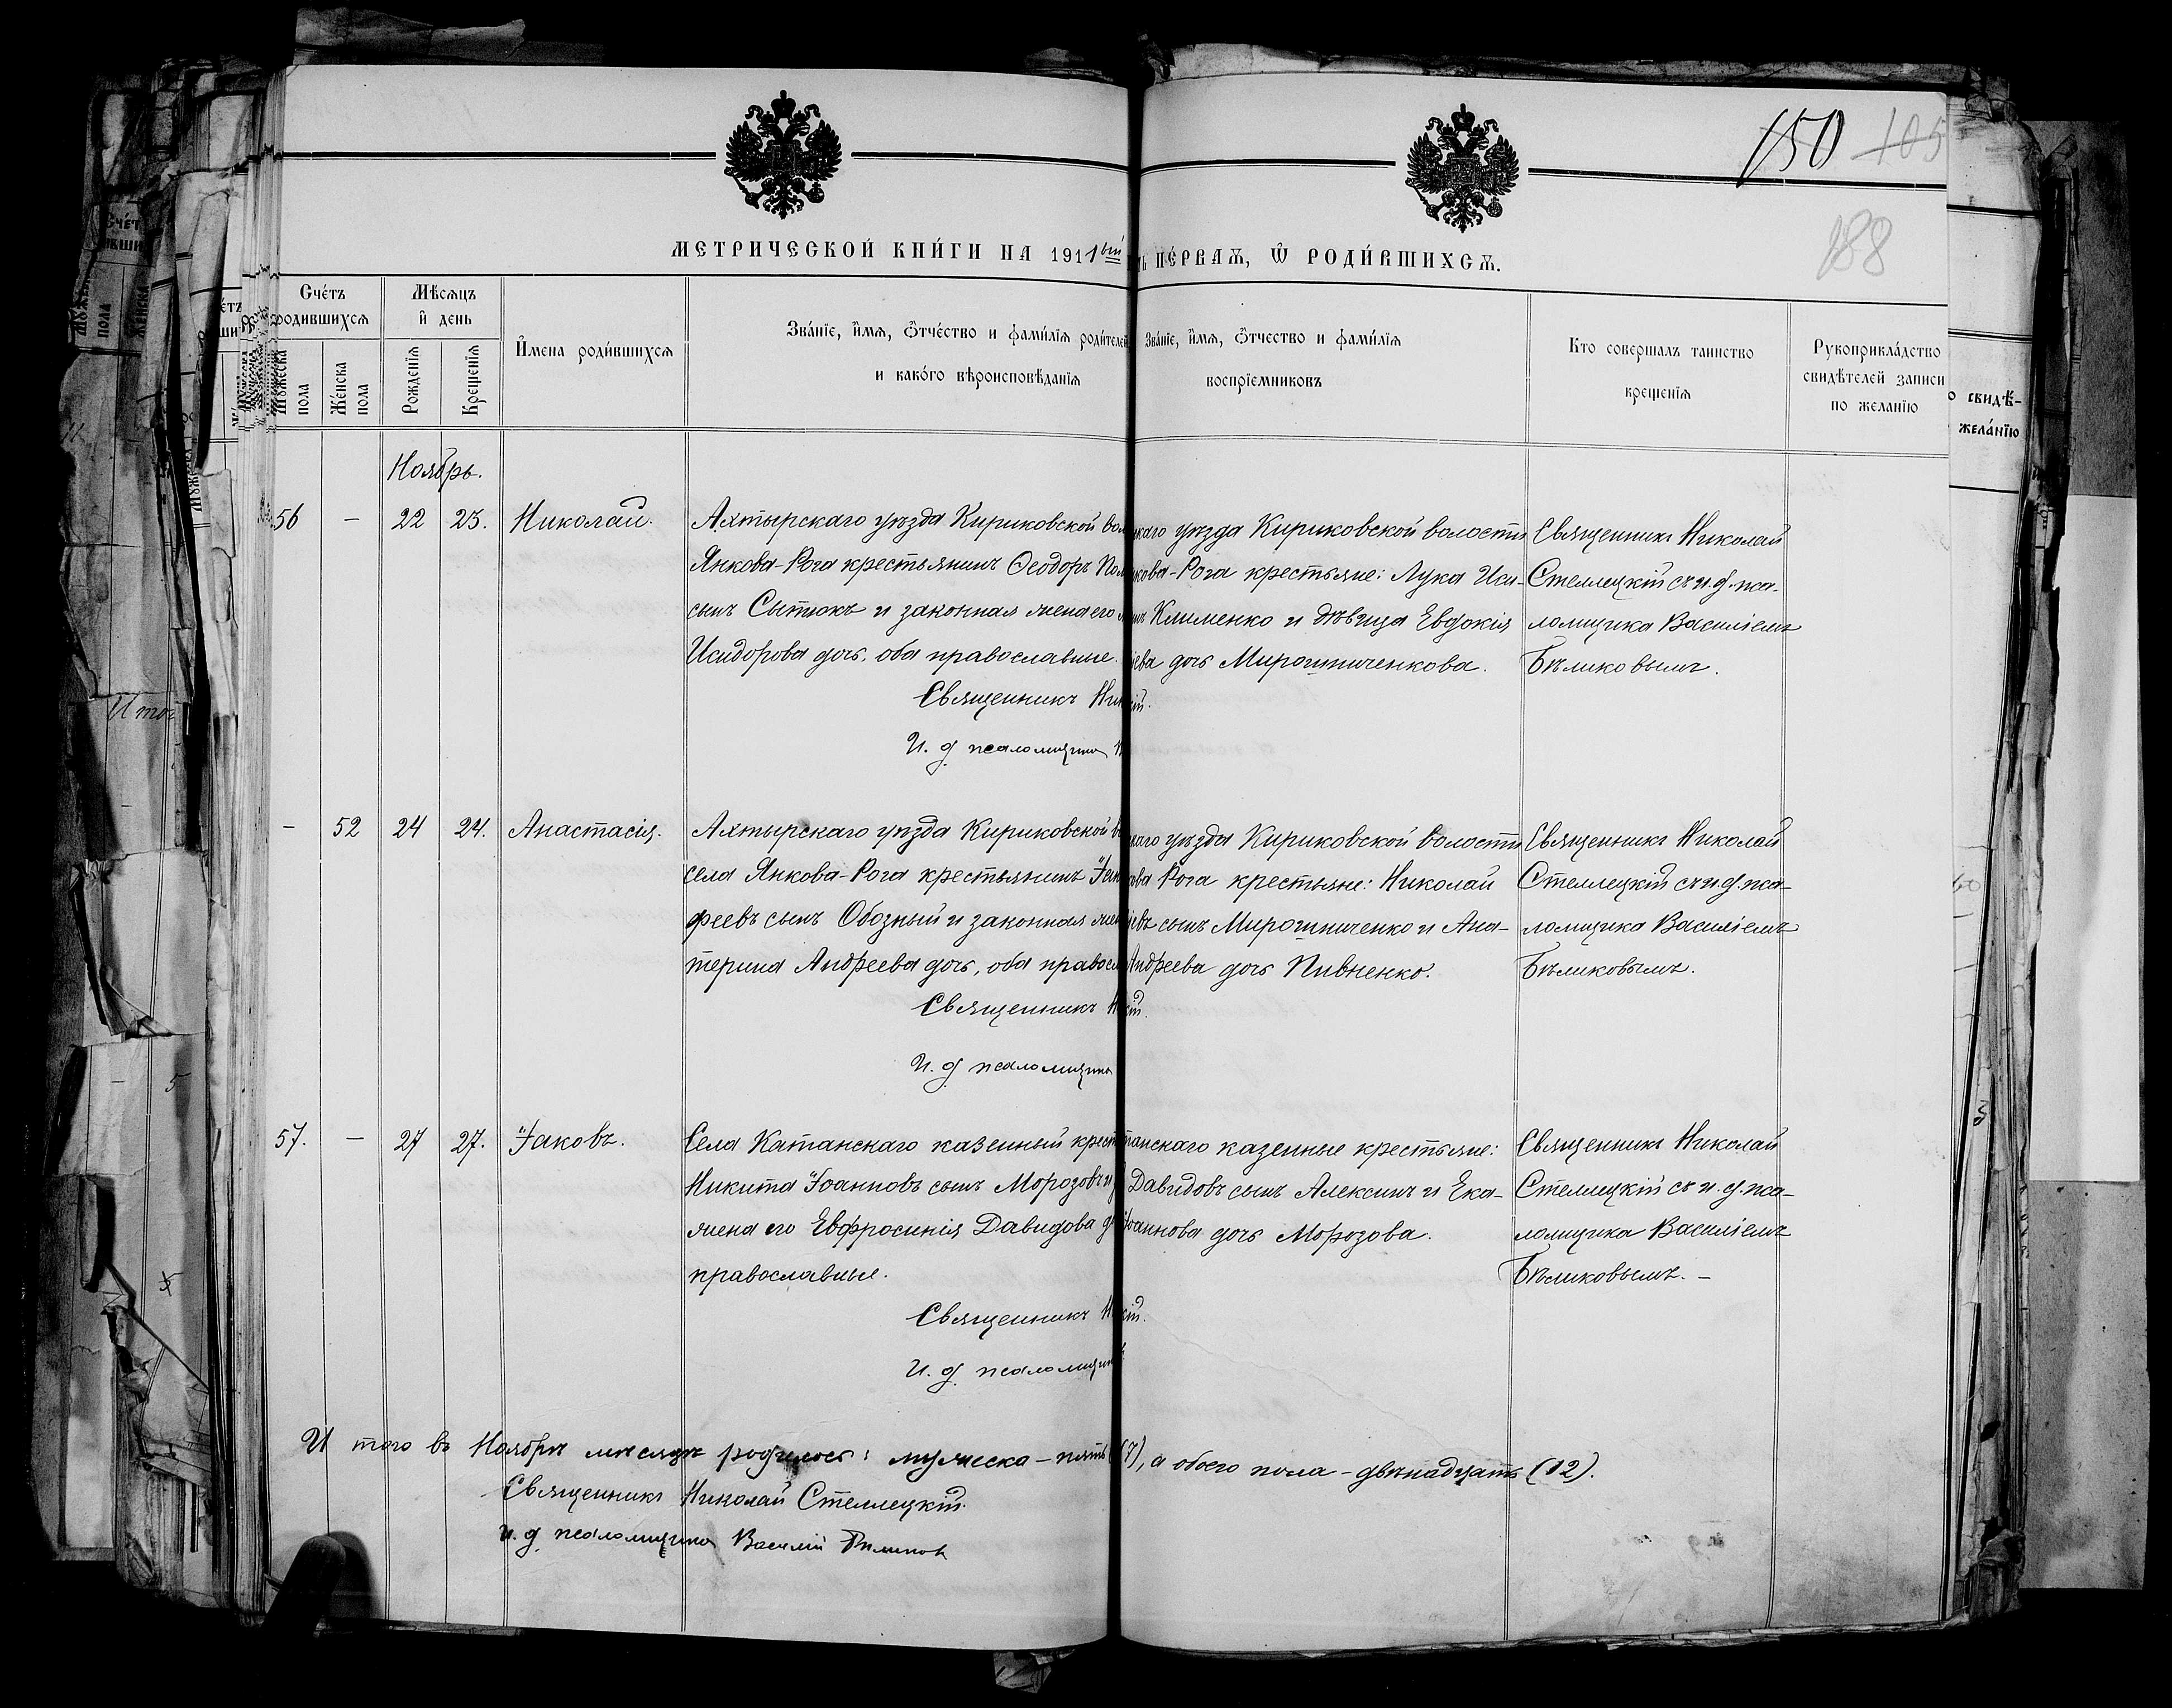 150 105
188
МЕТРИЧЕСКОЙ КНИГИ НА 1911ый
ПЕРВАѦ, Ѡ РОДИВШИХСѦ.
Счетъ родившихсѧ
Мѣсѧцъ и день
Имена родившихсѧ
Званїе, имѧ, ѿчество и фамилїѧ родителей
и какого вѣроисповѣданїѧ
Званїе, имѧ, ѿчество и фамилїѧ
воспрїемниковъ
Кто совершалъ таинство
крещенїѧ
Рукоприкладство
свидѣтелей записи
по желанїю
Мужеска пола
Женска пола
Рожденїѧ
Крещенїѧ
Ноябрь.
56 — 22 23. Николай.
Ахтырскаго уѣзда Кириковской
Янкова-Рога крестьянинъ Ѳеодоръ
сынъ Сытюкъ и законная жена его
Исидорова дочь, оба православные.
Священникъ
И. д псаломщика
уѣзда Кириковской волости
Рога крестьяне: Лука Иси-
Клименко и дѣвица Евдокія
дочь Мирошниченкова.
Священникъ Николай
Стеллецкій съ и.д. пса-
ломщика Василіемъ
Бѣликовымъ.
— 52 24 24. Анастасія.
Ахтырскаго уѣзда Кириковской
села Янкова-Рога крестьянинъ
феевъ сынъ Обозный и законная
терина Андреева дочь, оба
Священникъ
И. д псаломщика
уѣзда Кириковской волости
Рога крестьяне: Николай
сынъ Мирошниченко и Ана-
Андреева дочь Пивненко.
Священникъ Николай
Стеллецкій съ и.д. пса-
ломщика Василіемъ
Бѣликовымъ.
57. — 27 27. Іаковъ.
Села Катанскаго казенный
Никита Іоанновъ сынъ Морозовъ и
жена его Евфросинія Давидова
православные.
Священникъ
И. д. псаломщика
казенные крестьяне:
Давидовъ сынъ Алексинъ и Ека-
Іоаннова дочь Морозова.
Священникъ Николай
Стеллецкій съ и. д. пса-
ломщика Василіемъ
Бѣликовымъ. —
И того въ Ноябрѣ мѣсяцѣ родилось: мужеска — пять (7), а обоего пола — двѣнадцать (12).
Священникъ Николай Стеллецкій.
и. д. псаломщика Василій Бѣликов